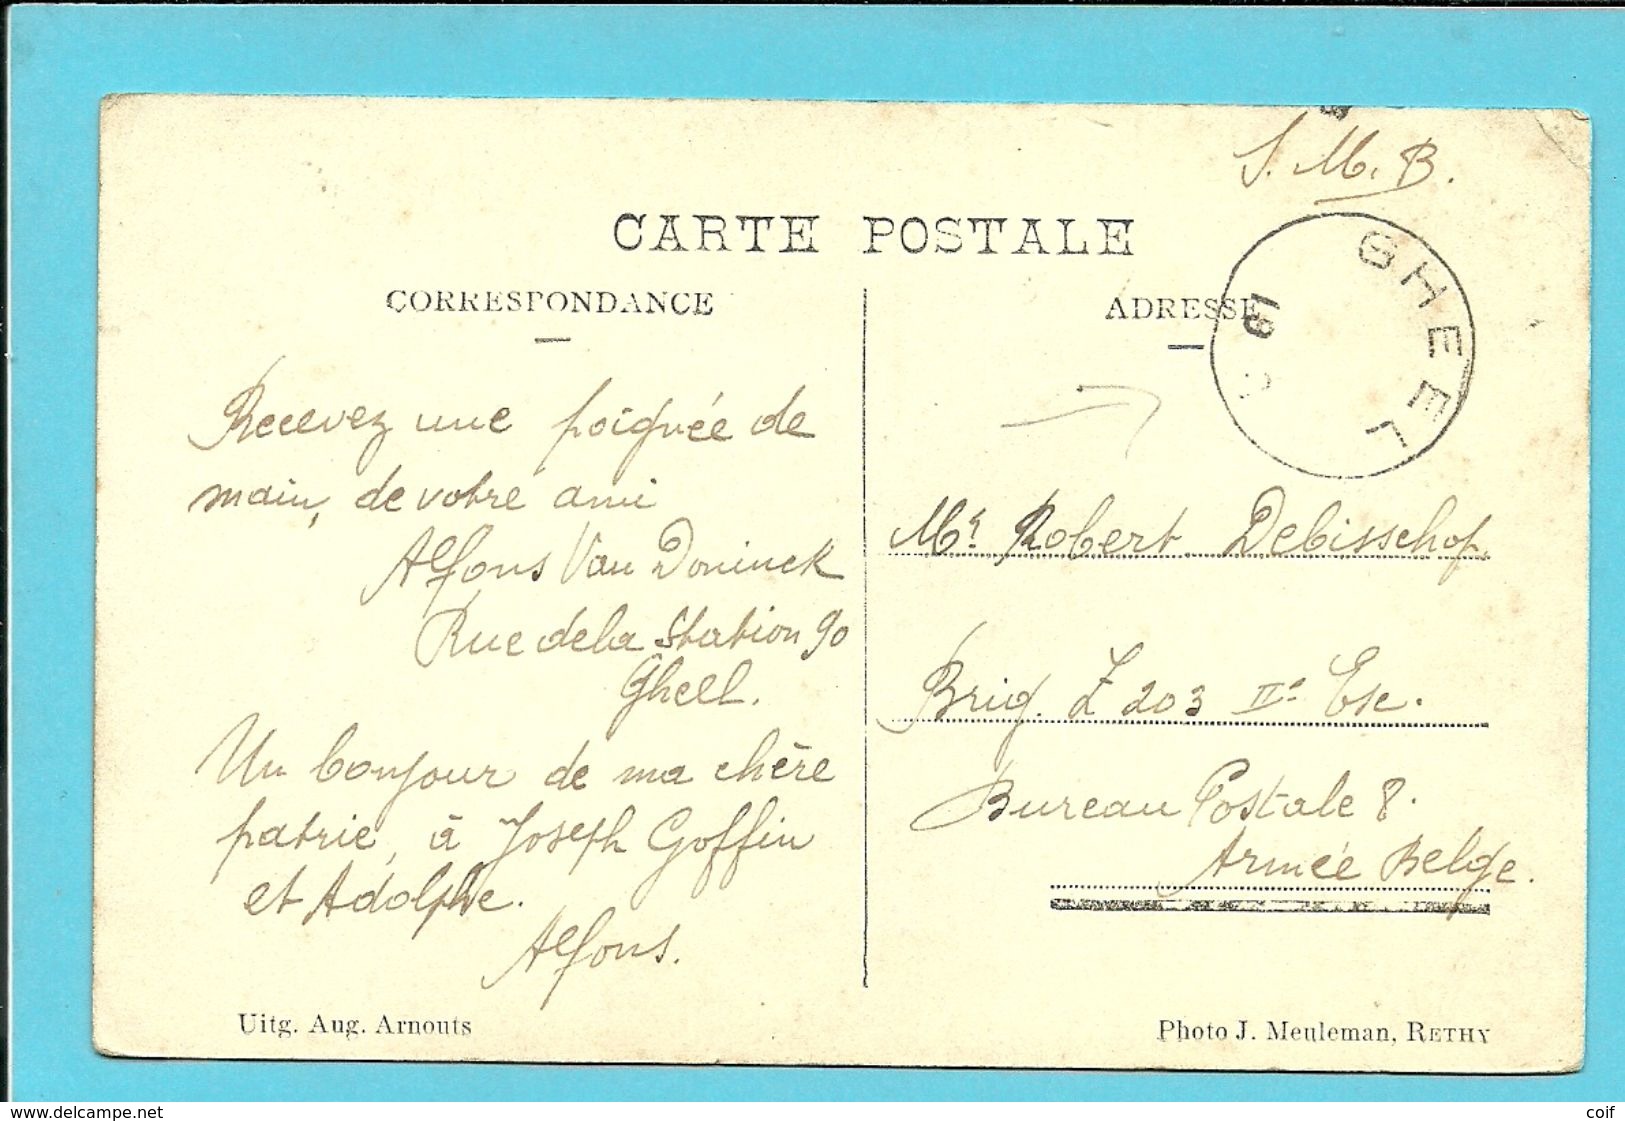 S. M. B.
CARTE POSTALE
CORRESPONDANCE
ADRESSE
GHEEL
19
Recevez une poignée de
main, de votre ami
Alfons Van Doninck
Rue de la Station 90
Gheel.
Un bonjour de ma chère
patrie, à Joseph Goffin
et Adolphe.
Alfons.
Mr. Robert Debisschop.
Brig. Z 203 IIe Esc.
Bureau Postale 8.
Armée Belge.
Uitg. Aug. Arnouts
Photo J. Meuleman, RETHY
www.delcampe.net
coif